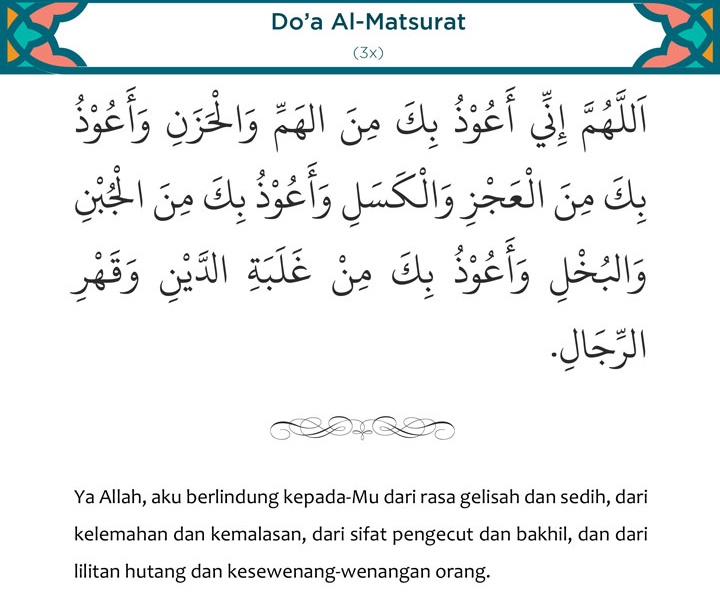 Do’a Al-Matsurat
(3x)
اَللَّهُمَّ إِنِّي أَعُوْذُ بِكَ مِنَ الهَمِّ وَالْحَزَنِ وَأَعُوْذُ
بِكَ مِنَ الْعَجْزِ وَالْكَسَلِ وَأَعُوْذُ بِكَ مِنَ الْجُبْنِ
وَالبُخْلِ وَأَعُوْذُ بِكَ مِنْ غَلَبَةِ الدَّيْنِ وَقَهْرِ
الرِّجَالِ.
Ya Allah, aku berlindung kepada-Mu dari rasa gelisah dan sedih, dari
kelemahan dan kemalasan, dari sifat pengecut dan bakhil, dan dari
lilitan hutang dan kesewenang-wenangan orang.